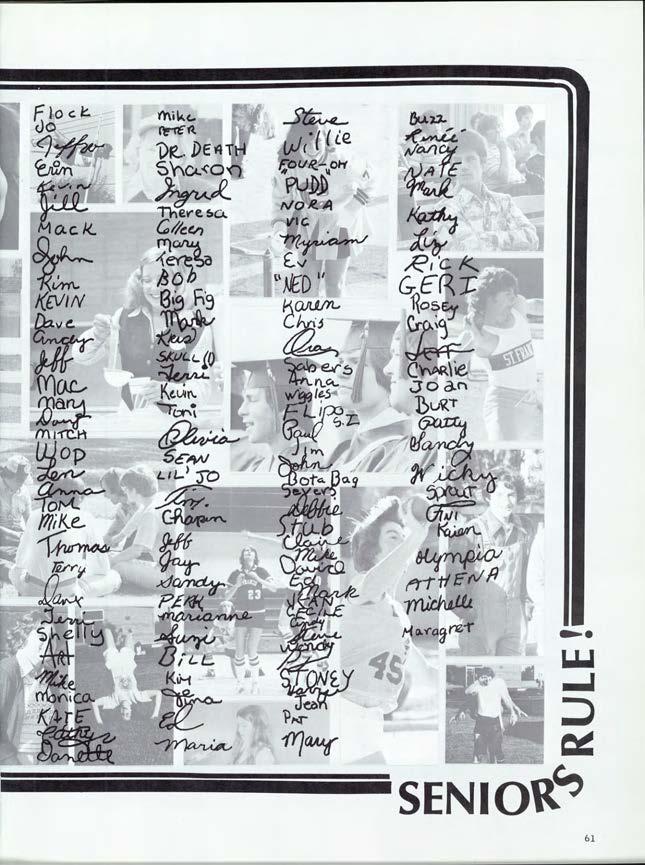 Flock
Jo
Erin
Kevin
Jill
Mack
John
Kim
KEVIN
Dave
Jeff
Mac
Mary
Doug
MITCH
WOP
Len
Anna
TOM
Mike
Thomas
Terry
Terri
Shelly
ART
Mike
monica
KATE
Danette
Mike
PETER
DR. DEATH
Sharon
Ingrid
Theresa
Colleen
Mary
Teresa
BOB
Big Fig
Mark
SKULL
Terri
Kevin
Toni
Olivia
SEAN
LIL' JO
Tim
Chapin
Jeff
Jay
Sandy
PERK
marianne
Suzi
BILL
Kim
Joe
Tina
Ed
Maria
Steve
Willie
FOUR-OH
"PUDD"
NORA
VIC
Myriam
Ev
"NED"
Karen
Chris
Sabers
Anna
Wiggles
FLIPO
S.I.
Paul
Jim
John
Bota Bag
Debbie
STUB
Claire
Mike
David
Ed
Mark
JEAN
CECILE
Cindy
Steve
Wendy
STONEY
Jean
PAT
Mary
BUZZ
Renée
Nancy
NATE
Mark
Kathy
Liz
RICK
GERI
Rosey
Craig
Jeff
Charlie
Joan
BURT
Patty
Sandy
Nicky
Sprout
Karen
Olympia
ATHENA
Michelle
Maragret
ST. FRAN
23
45
SENIORS RULE!
61